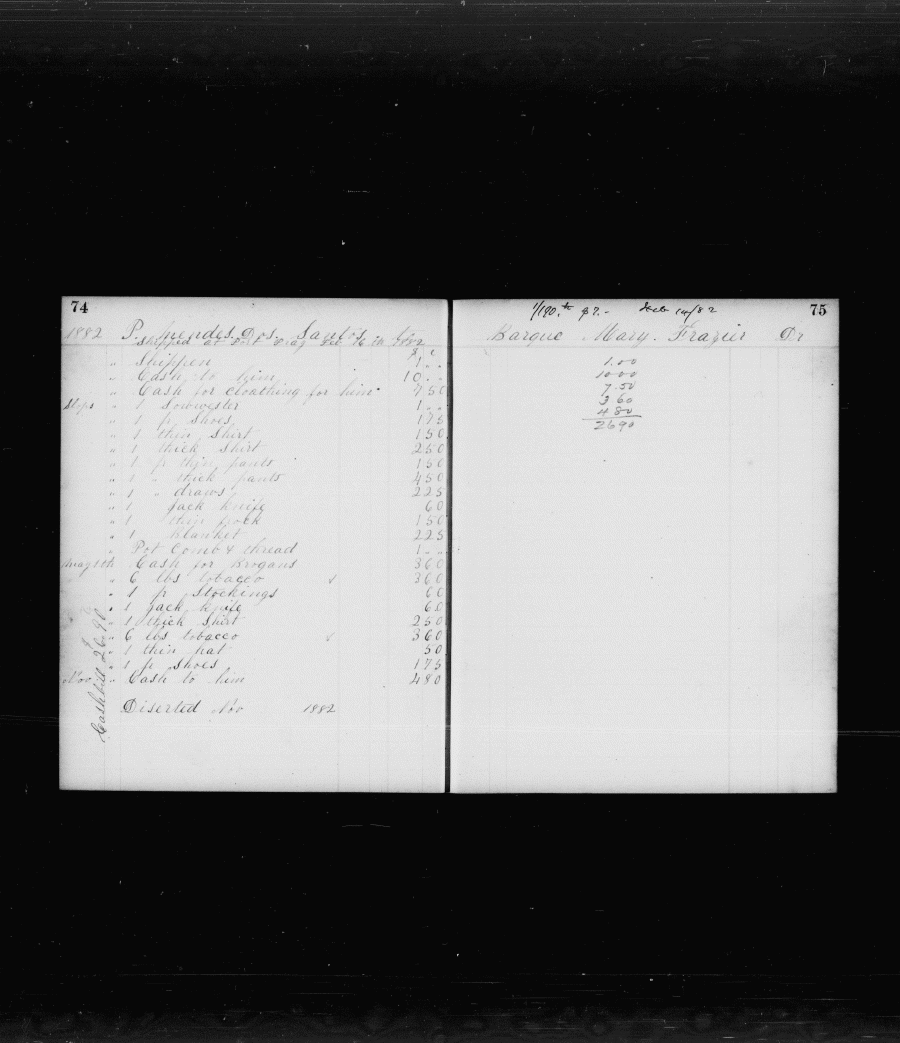 74
1882 P. Mendes Dos Santos Dr
Shipped at Port Praz Feb 6th 1882
$ c
" Shippen 1 " "
" Cash to him 10 " "
" Cash for cloathing for him 7 50
Slops " 1 Souwester 1 " "
" 1 pr Shoes 1 75
" 1 thin Shirt 1 50
" 1 thick Shirt 2 50
" 1 pr thin pants 1 50
" 1 " thick pants 4 50
" 1 " draws 2 25
" 1 Jack Knife 60
" 1 thin frock 1 50
" 1 Blanket 2 25
" Pot Comb & thread 1 " "
May 10th " Cash for Brogans 3 60
" " 6 lbs tobacco 3 60
" 1 pr Stockings 60
" 1 Jack Knife 60
" 1 thick Shirt 2 50
" 6 lbs tobacco 3 60
" 1 thin hat 50
" 1 pr Shoes 1 75
Nov " Cash to him 4 80
Diserted Nov 1882
Cashbill $26.90
1/190.th $7.- Feb 14/82
75
Barque Mary. Frazier Dr
1.00
10 00
7.50
3 60
4 80
26 90